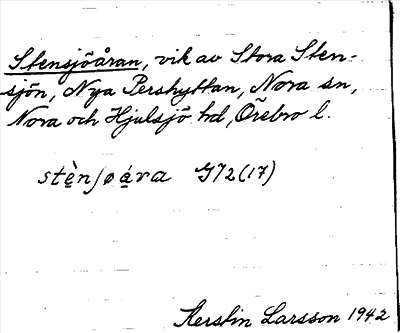 Stensjöåran, vik av Stora Sten-
sjön, Nya Pershyttan, Nora sn,
Nora och Hjulsjö hd, Örebro l.
G72(17)
Kerstin Larsson 1942